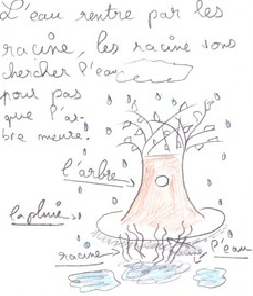 L'eau rentre par les
racine, les racine vons
chercher l'eau
pour pas
que l'ar-
bre meure.
l'arbre
la pluie
racine
l'eau